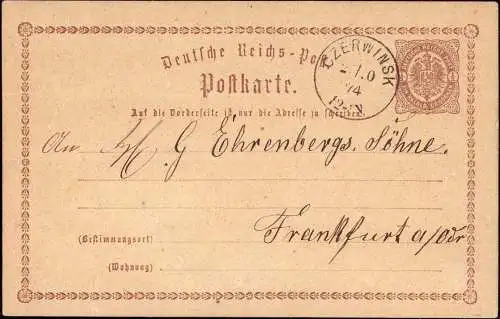 Deutsche Reichs-Post
Postkarte.
CZERWINSK
74
Auf die Vorderseite ist nur die Adresse zu schreiben.
An HH G Ehrenbergs. Söhne.
Frankfurt a/Odr
(Bestimmungsort)
(Wohnung)